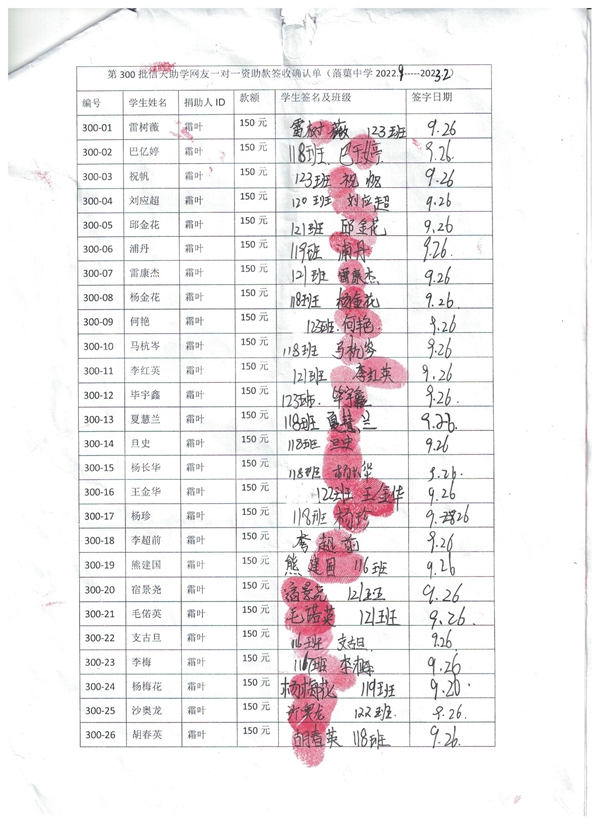 第300批信天助学网友一对一资助款签收确认单（菡蕖中学2022.9-----2023.2）
编号 学生姓名 捐助人ID 款额 学生签名及班级 签字日期
300-01 雷树薇 霜叶 150元 雷树薇 123班 9.26
300-02 巴亿婷 霜叶 150元 118班. 9.26.
300-03 祝帆 霜叶 150元 123班 祝帆 9.26
300-04 刘应超 霜叶 150元 120班 刘应超 9.26
300-05 邱金花 霜叶 150元 121班 邱金花 9.26
300-06 浦丹 霜叶 150元 119班 浦丹 9.26.
300-07 雷康杰 霜叶 150元 121班 雷康杰 9.26
300-08 杨金花 霜叶 150元 118班 杨金花 9.26
300-09 何艳 霜叶 150元 123班. 何艳. 9.26
300-10 马杭岑 霜叶 150元 118班 马杭岑 9.26
300-11 李红英 霜叶 150元 121班 李红英 9.26
300-12 毕宇鑫 霜叶 150元 123班. 毕宇鑫 9.26.
300-13 夏慧兰 霜叶 150元 118班 夏慧兰 9.26.
300-14 旦史 霜叶 150元 118班 旦史 9.26
300-15 杨长华 霜叶 150元 118班 杨长华 9.26.
300-16 王金华 霜叶 150元 122班 王金华 9.26
300-17 杨珍 霜叶 150元 118班 杨珍 9.26
300-18 李超前 霜叶 150元 李超前 9.26
300-19 熊建国 霜叶 150元 熊建国 116班 9.26
300-20 宿景尧 霜叶 150元 宿景尧 121班 9.26
300-21 毛偌英 霜叶 150元 毛偌英 121班 9.26
300-22 支古旦 霜叶 150元 116班 支古旦 9.26.
300-23 李梅 霜叶 150元 116班 李梅 9.26
300-24 杨梅花 霜叶 150元 杨梅花 119班 9.20.
300-25 沙奥龙 霜叶 150元 122班. 9.26.
300-26 胡春英 霜叶 150元 胡春英 118班 9.26.